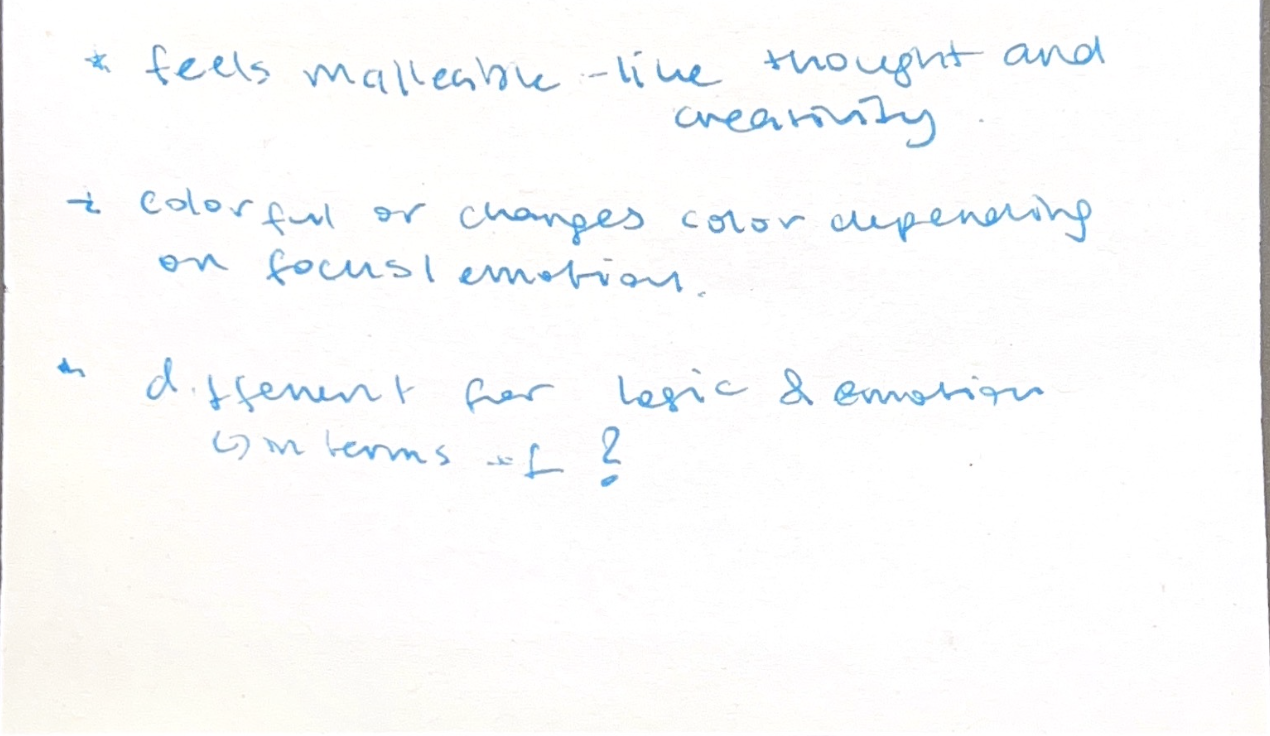 * feels malleable - like thought and
creativity.
* colorful or changes color depending
on focus/emotion.
* different for logic & emotion
↳ in terms of ?